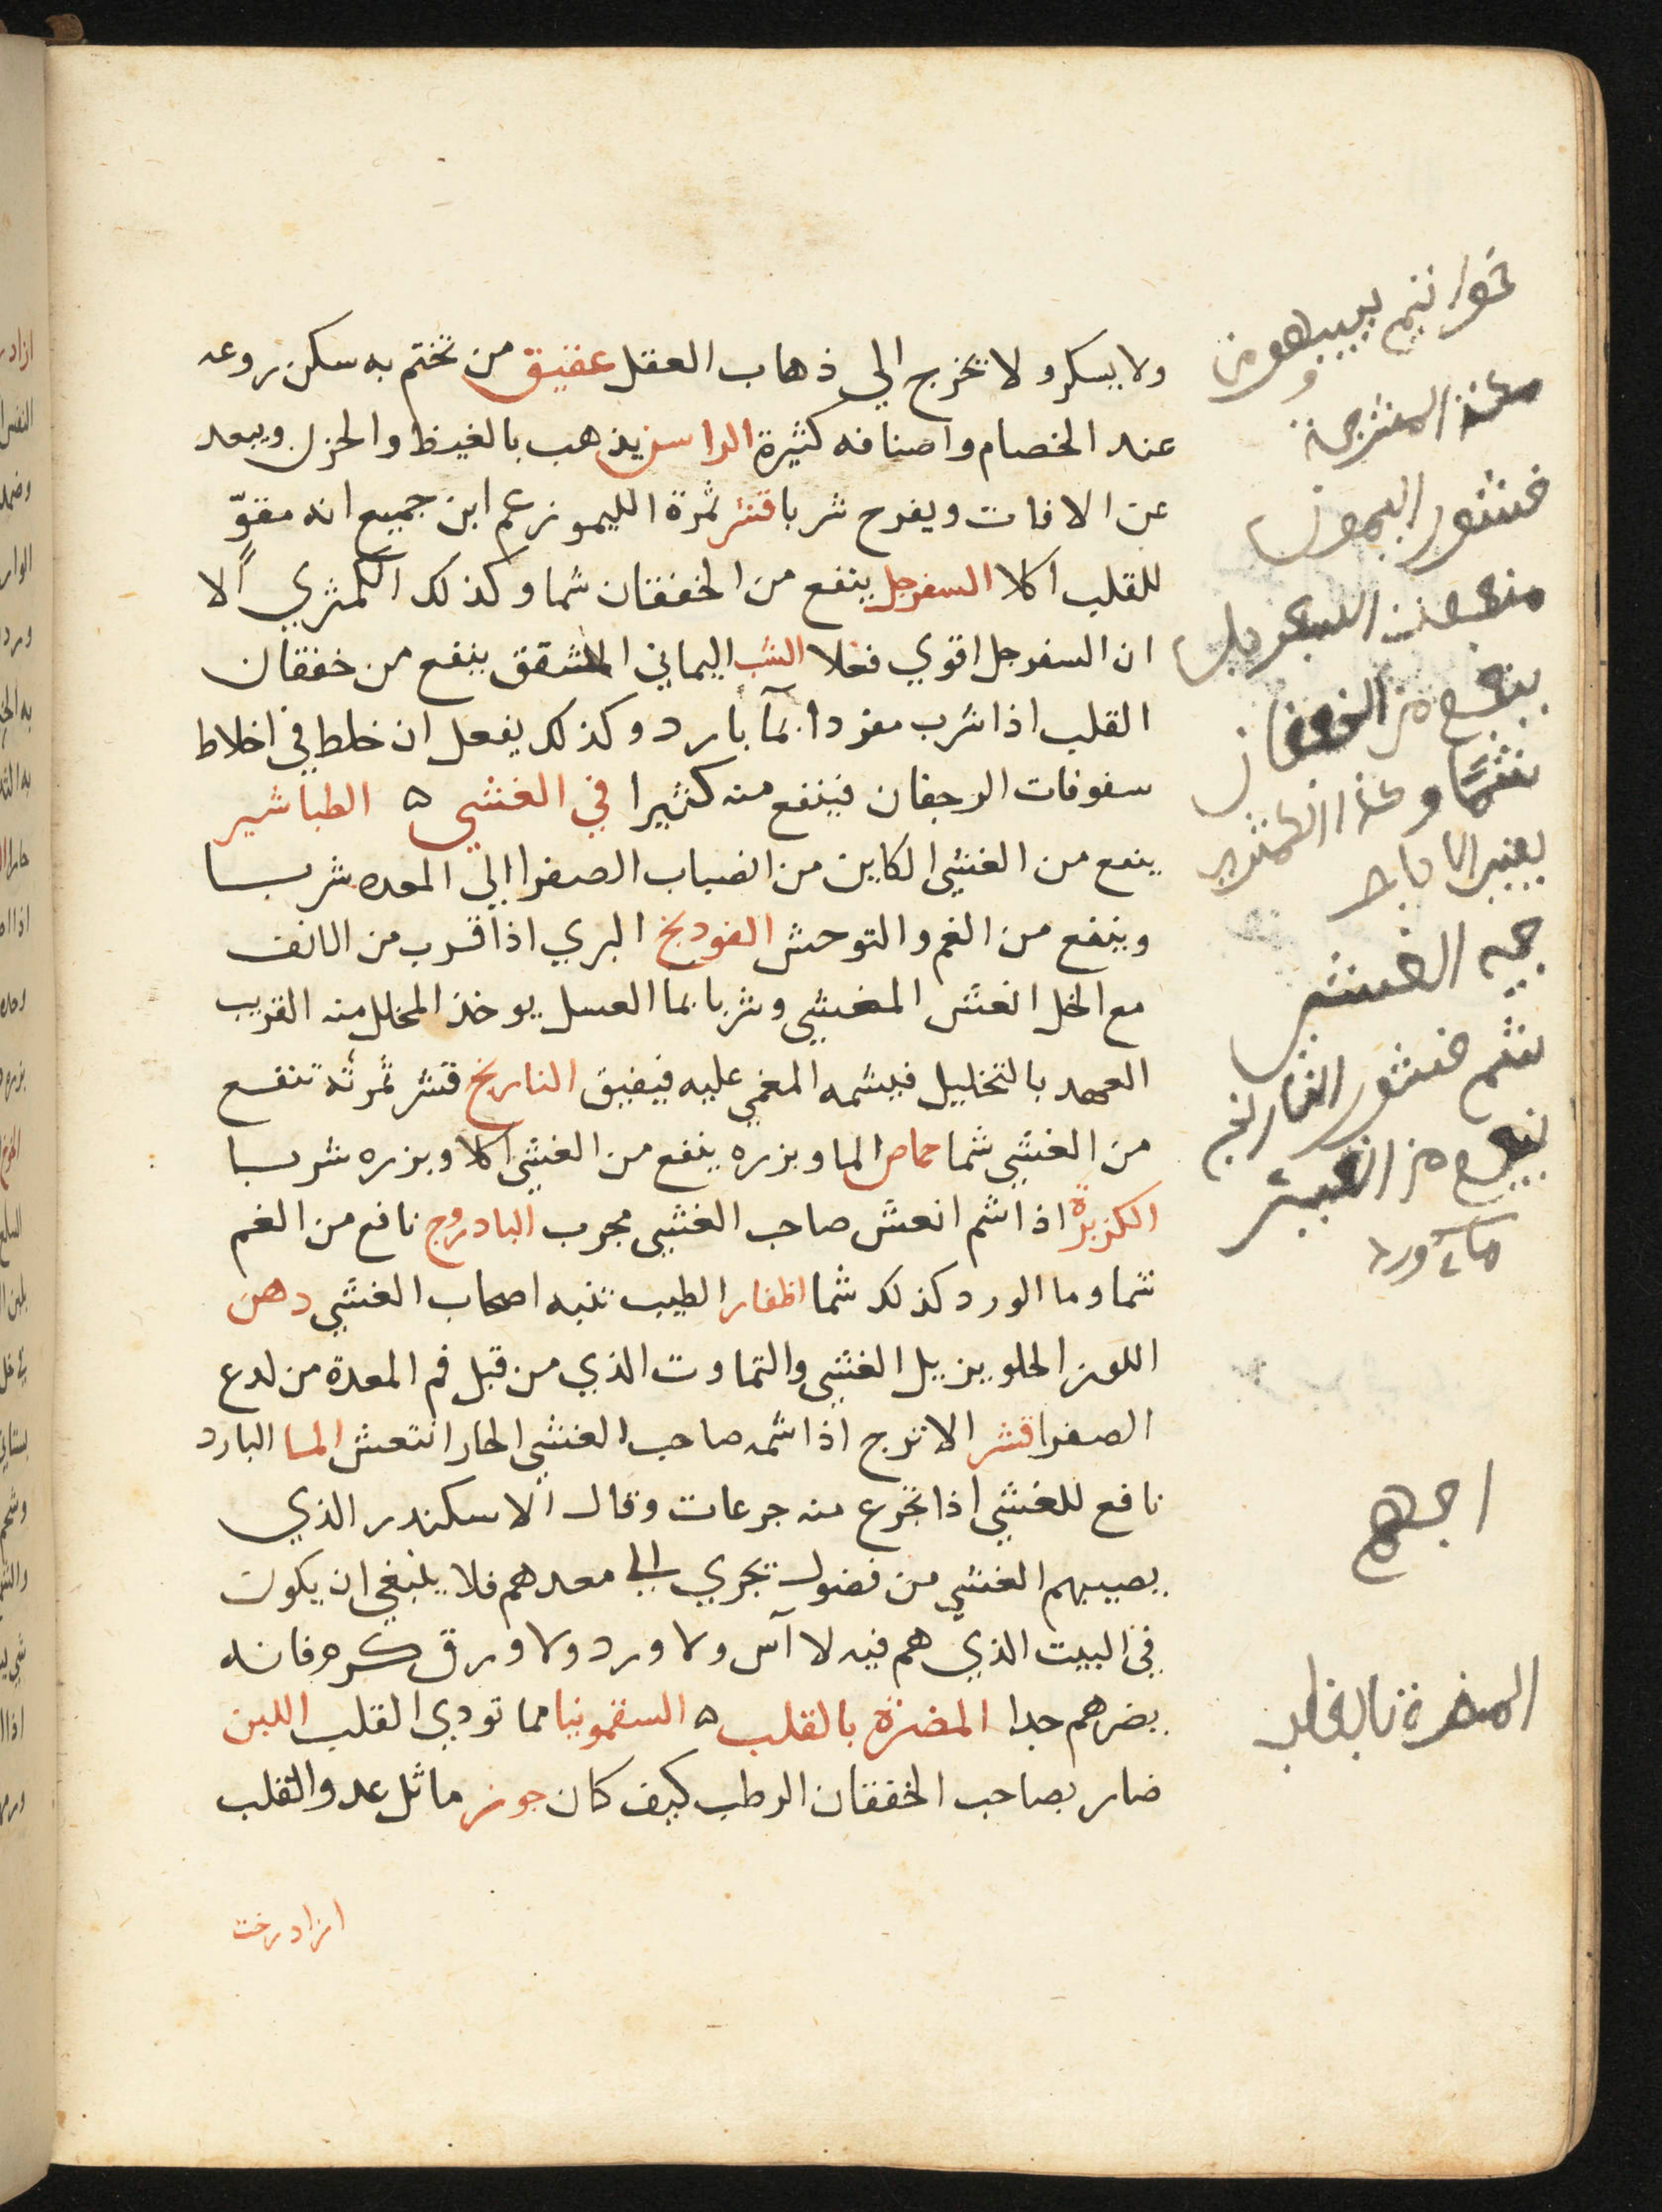 ولا يسكر ولا تخرج الي ذهاب العقل عقيق من تختم به سكن روعه
عند الخصام واصنافه كثيرة الراسن يذهب بالغيظ والحزن ويبعد
عن الافات ويفرح شربا قشر ثمرة الليمو زعم ابن جميع انه مقوّ
للقلب اكلا السفرجل ينفع من الخفقان شما وكذلك الكمثري الا
ان السفرجل اقوي فعلا الشب اليماني المشقق ينفع من خفقان
القلب اذا شرب مفردا بمآ بارد وكذلك يفعل ان خلط في اخلاط
سفوفات الرجفان فينفع منه كثيرا في الغشي ه الطباشير
ينفع من الغشي الكاين من انصباب الصفرا الي المعده شربا
وينفع من الغم والتوحش الفودنج البري اذا قرب من الانف
مع الخل انعش المغشي وشربا بما العسل يوخذ المخلل منه القريب
العهد بالتخليل فيشمه المغمي عليه فيفيق النارنج قشر ثمرته تنفع
من الغشي شما حماض الما وبزره ينفع من الغشي اكلا وبزره شربا
الكزبرة اذا شم انعش صاحب الغشي مجرب البادروج نافع من الغم
شما وما الورد كذلك شما اظفار الطيب تنبه اصحاب الغشي دهن
اللوز الحلو يزيل الغشي والتماوت الذي من قبل فم المعدة من لدع
الصفرا قشر الاترج اذا شمه صاحب الغشي الحار انتعش الما البارد
نافع للغشي اذا تجرع منه جرعات وقال الاسكندر الذي
يصيبهم الغشي من فضول تجري الي معدهم فلا ينبغي ان يكون
في البيت الذي هم فيه لا آس ولا ورد ولا ورق كرم فانه
يضرهم جدا المضرة بالقلب ه السقمونيا مما تودي القلب اللبن
ضار بصاحب الخفقان الرطب كيف كان جوز ماثل عدو القلب
ازادرخت
خواتيم
فشور اليمون
ينفع من الخفقان
شمًا وكذا الكمثري
الغشي
شم فشور النارنج
ينفع من
مآء ورد
المضرة بالقلب